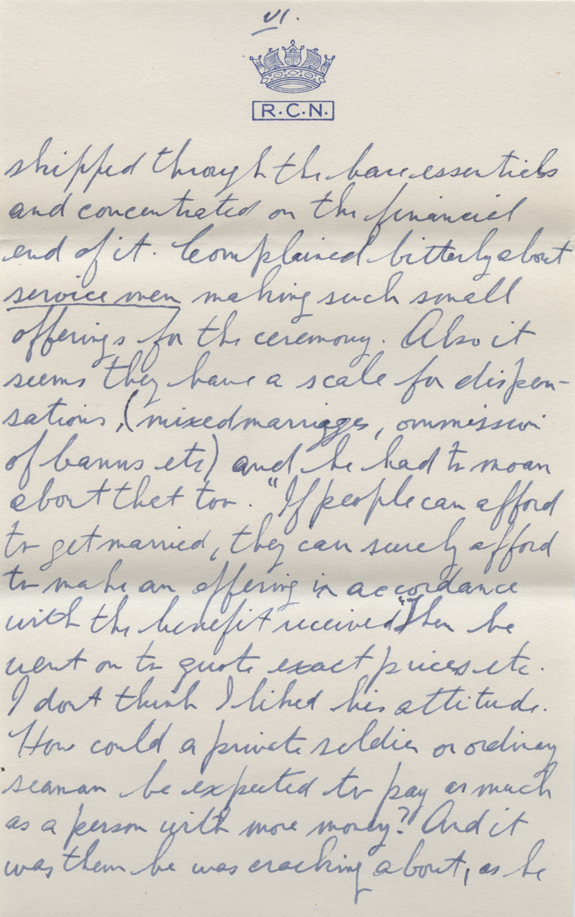 VI.
R.C.N.
skipped through the bare essentials
and concentrated on the financial
end of it. Complained bitterly about
service men making such small
offerings for the ceremony. Also it
seems they have a scale for dispen-
sations, (mixed marriages, ommission
of banns etc) and he had to moan
about that too. "If people can afford
to get married, they can surely afford
to make an offering in accordance
with the benefit received" Then he
went on to quote exact prices etc.
I dont think I liked his attitude.
How could a private soldier or ordinary
seaman be expected to pay as much
as a person with more money? And it
was them he was cracking about, as he